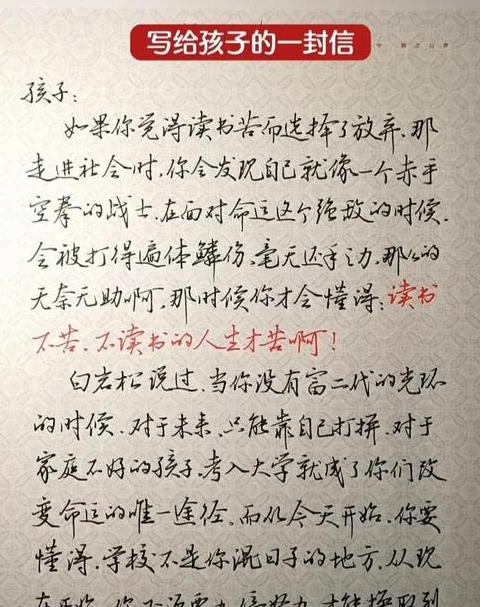 写给孩子的一封信
孩子:
如果你觉得读书苦而选择了放弃,那
走进社会时,你会发现自己就像一个赤手
空拳的战士,在面对命运这个强敌的时候,
会被打得遍体鳞伤、毫无还手之力,那么的
无奈无助啊,那时候你才会懂得:读书
不苦、不读书的人生才苦啊!
白岩松说过,当你没有富二代的光环
的时候,对于未来,只能靠自己打拼,对于
家庭不好的孩子,考入大学就成了你们改
变命运的唯一途径,而从今天开始,你要
懂得,学校不是你混日子的地方,从现